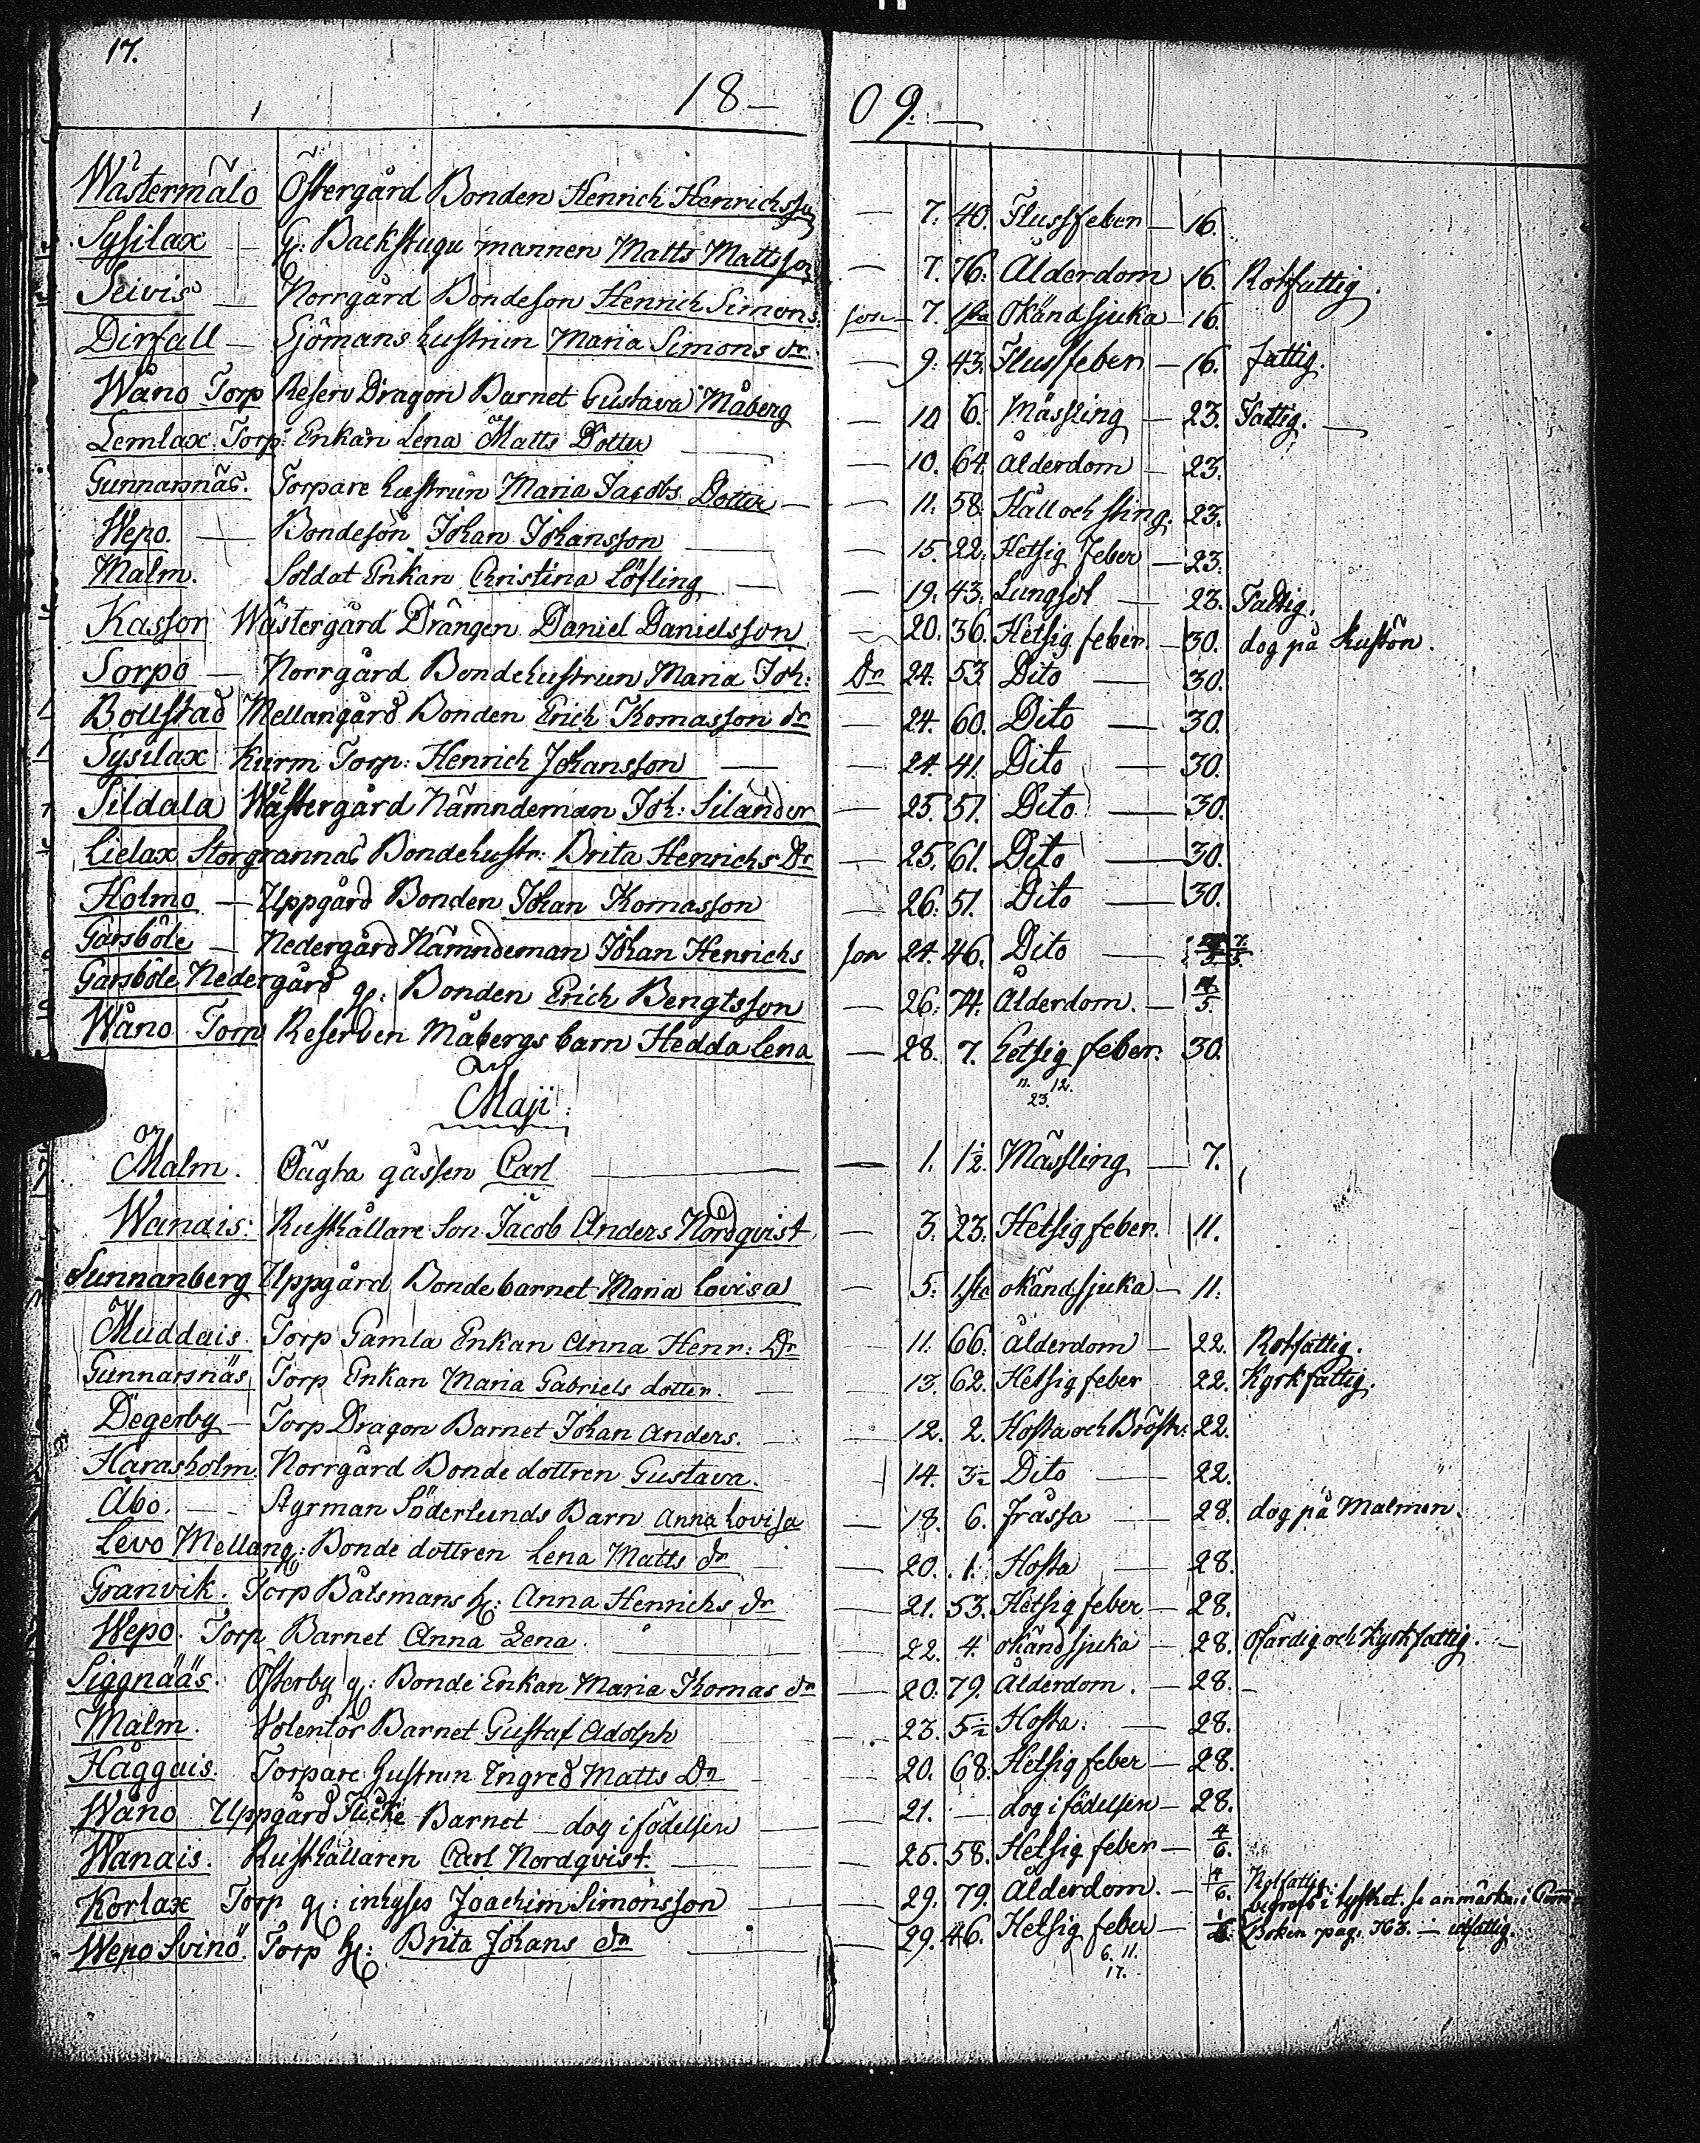 17.
18 — 09. —
Wästermälo Östergård Bonden Henrich Henrichsson — 7. 40. Flussfeber — 16.
Sysilax — g: Backstugu mannen Matts Mattsson — 7. 76. Ålderdom 16. Rotfattig.
Seivis — Norrgård Bondeson Henrich Simons son — 7. Okänd sjuka — 16.
Dirfall — Sjömans hustrun Maria Simons dr — 9. 43. Flussfeber — 16. fattig.
Wåno Torp Reserv Dragon Barnet Gustava Måberg — 10 6. Mässling — 23. Fattig. —
Lemlax Torp: Enkan Lena Matts Dotter — 10. 64. Ålderdom — 23.
Gunnarsnäs. Torpare hustrun Maria Jacobs Dotter — 11. 58. Håll och sting. 23.
Wepo. — Bondeson Johan Johansson — 15. 22. Hetsig feber — 23.
Malm. Soldat Enkan Christina Löfling — 19. 43. Lungsot — 23. Fattig.
Kassor Wästergård Drängen Daniel Danielsson — 20. 36. Hetsig feber. — 30. dog på Kustön.
Sorpo — Norrgård Bondehustrun Maria Joh: Dr 24. 53. Dito — 30.
Bollstad Mellangård Bonden Erich Thomasson dr — 24. 60. Dito — 30.
Sysilax Kurm Torp: Henrich Johansson — 24. 41. Dito — 30.
Sildala Wästergård Nämndeman Joh: Silander — 25. 51. Dito — 30.
Lielax Storgrannas Bondehustr: Brita Henrichs Dr — 25. 61. Dito — 30.
Holmo — Uppgård Bonden Johan Thomasson — 26. 51. Dito — 30.
Garsböle — Nedergård Nämndeman Johan Henrichs son 24. 46. Dito — 7/5.
Garsböle Nedergård g: Bonden Erich Bengtsson — 26. 74. Ålderdom. — /5.
Wåno Torp Reserven Måbergs barn Hedda Lena — 28. 7. hetsig feber. 30.
11. 12.
23.
Maji.
Malm. Oägta gåssen Carl — 1. 1½. Mässling — 7.
Wanais: Rusthållare Son Jacob Anders Nordqvist — 3. 23. Hetsig feber. 11.
Sunnanberg Uppgård Bondebarnet Maria Lovisa — 5. okänd sjuka — 11.
Muddais. Torp Gamla Enkan Anna Henr: Dr 11. 66. ålderdom — 22. Rotfattig.
Gunnarsnäs, Torp Enkan Maria Gabriels dotter. — 13. 62. Hetsig feber 22. Kyrkfattig.
Degerby — Torp Dragon Barnet Johan Anders. — 12. 2. Hosta och Bröstv: 22.
Harasholm. Norrgård Bonde dottren Gustava. 14. 3½ Dito — 22.
Åbo. — Styrman Söderlunds Barn Anna Lovisa — 18. 6. frässa — 28. dog på Malmen.
Levo Mellang: Bonde dottren Lena Matts dr — 20. 1. Hosta — 28.
Granvik. Torp Båtsmans h: Anna Henrichs dr — 21. 53. Hetsig feber — 28.
Wepo. Torp Barnet Anna Lena. — 22. 4. okänd sjuka — 28. Ofärdig och Kyrkfattig. —
Siggnääs. Österby g: Bonde Enkan Maria Thomas dr — 20. 79. Ålderdom. — 28. —
Malm. Volentör Barnet Gustaf Adolph — 23. 5½ Hosta. — 28.
Häggais. Torpare hustrun Ingred Matts Dr — 20. 68. Hetsig feber — 28.
Wåno Uppgård Flicke Barnet — dog i födelsen — 21. — dog i födelsen — 28.
Wanais. Rusthållaren Carl Nordqvist. — 25. 58. Hetsig feber — 4/6.
Korlax Torp g: inhyses Joachim Simonsson — 29. 79. Ålderdom. — 4/6. Rotfattig:
Wepo Svinö. Torp h: Brita Johans dr — 29. 46. Hetsig feber — begrofs i tysthet se anmärkn: i Comm: Boken pag. 163. — utfattig.
6. 11.
17.